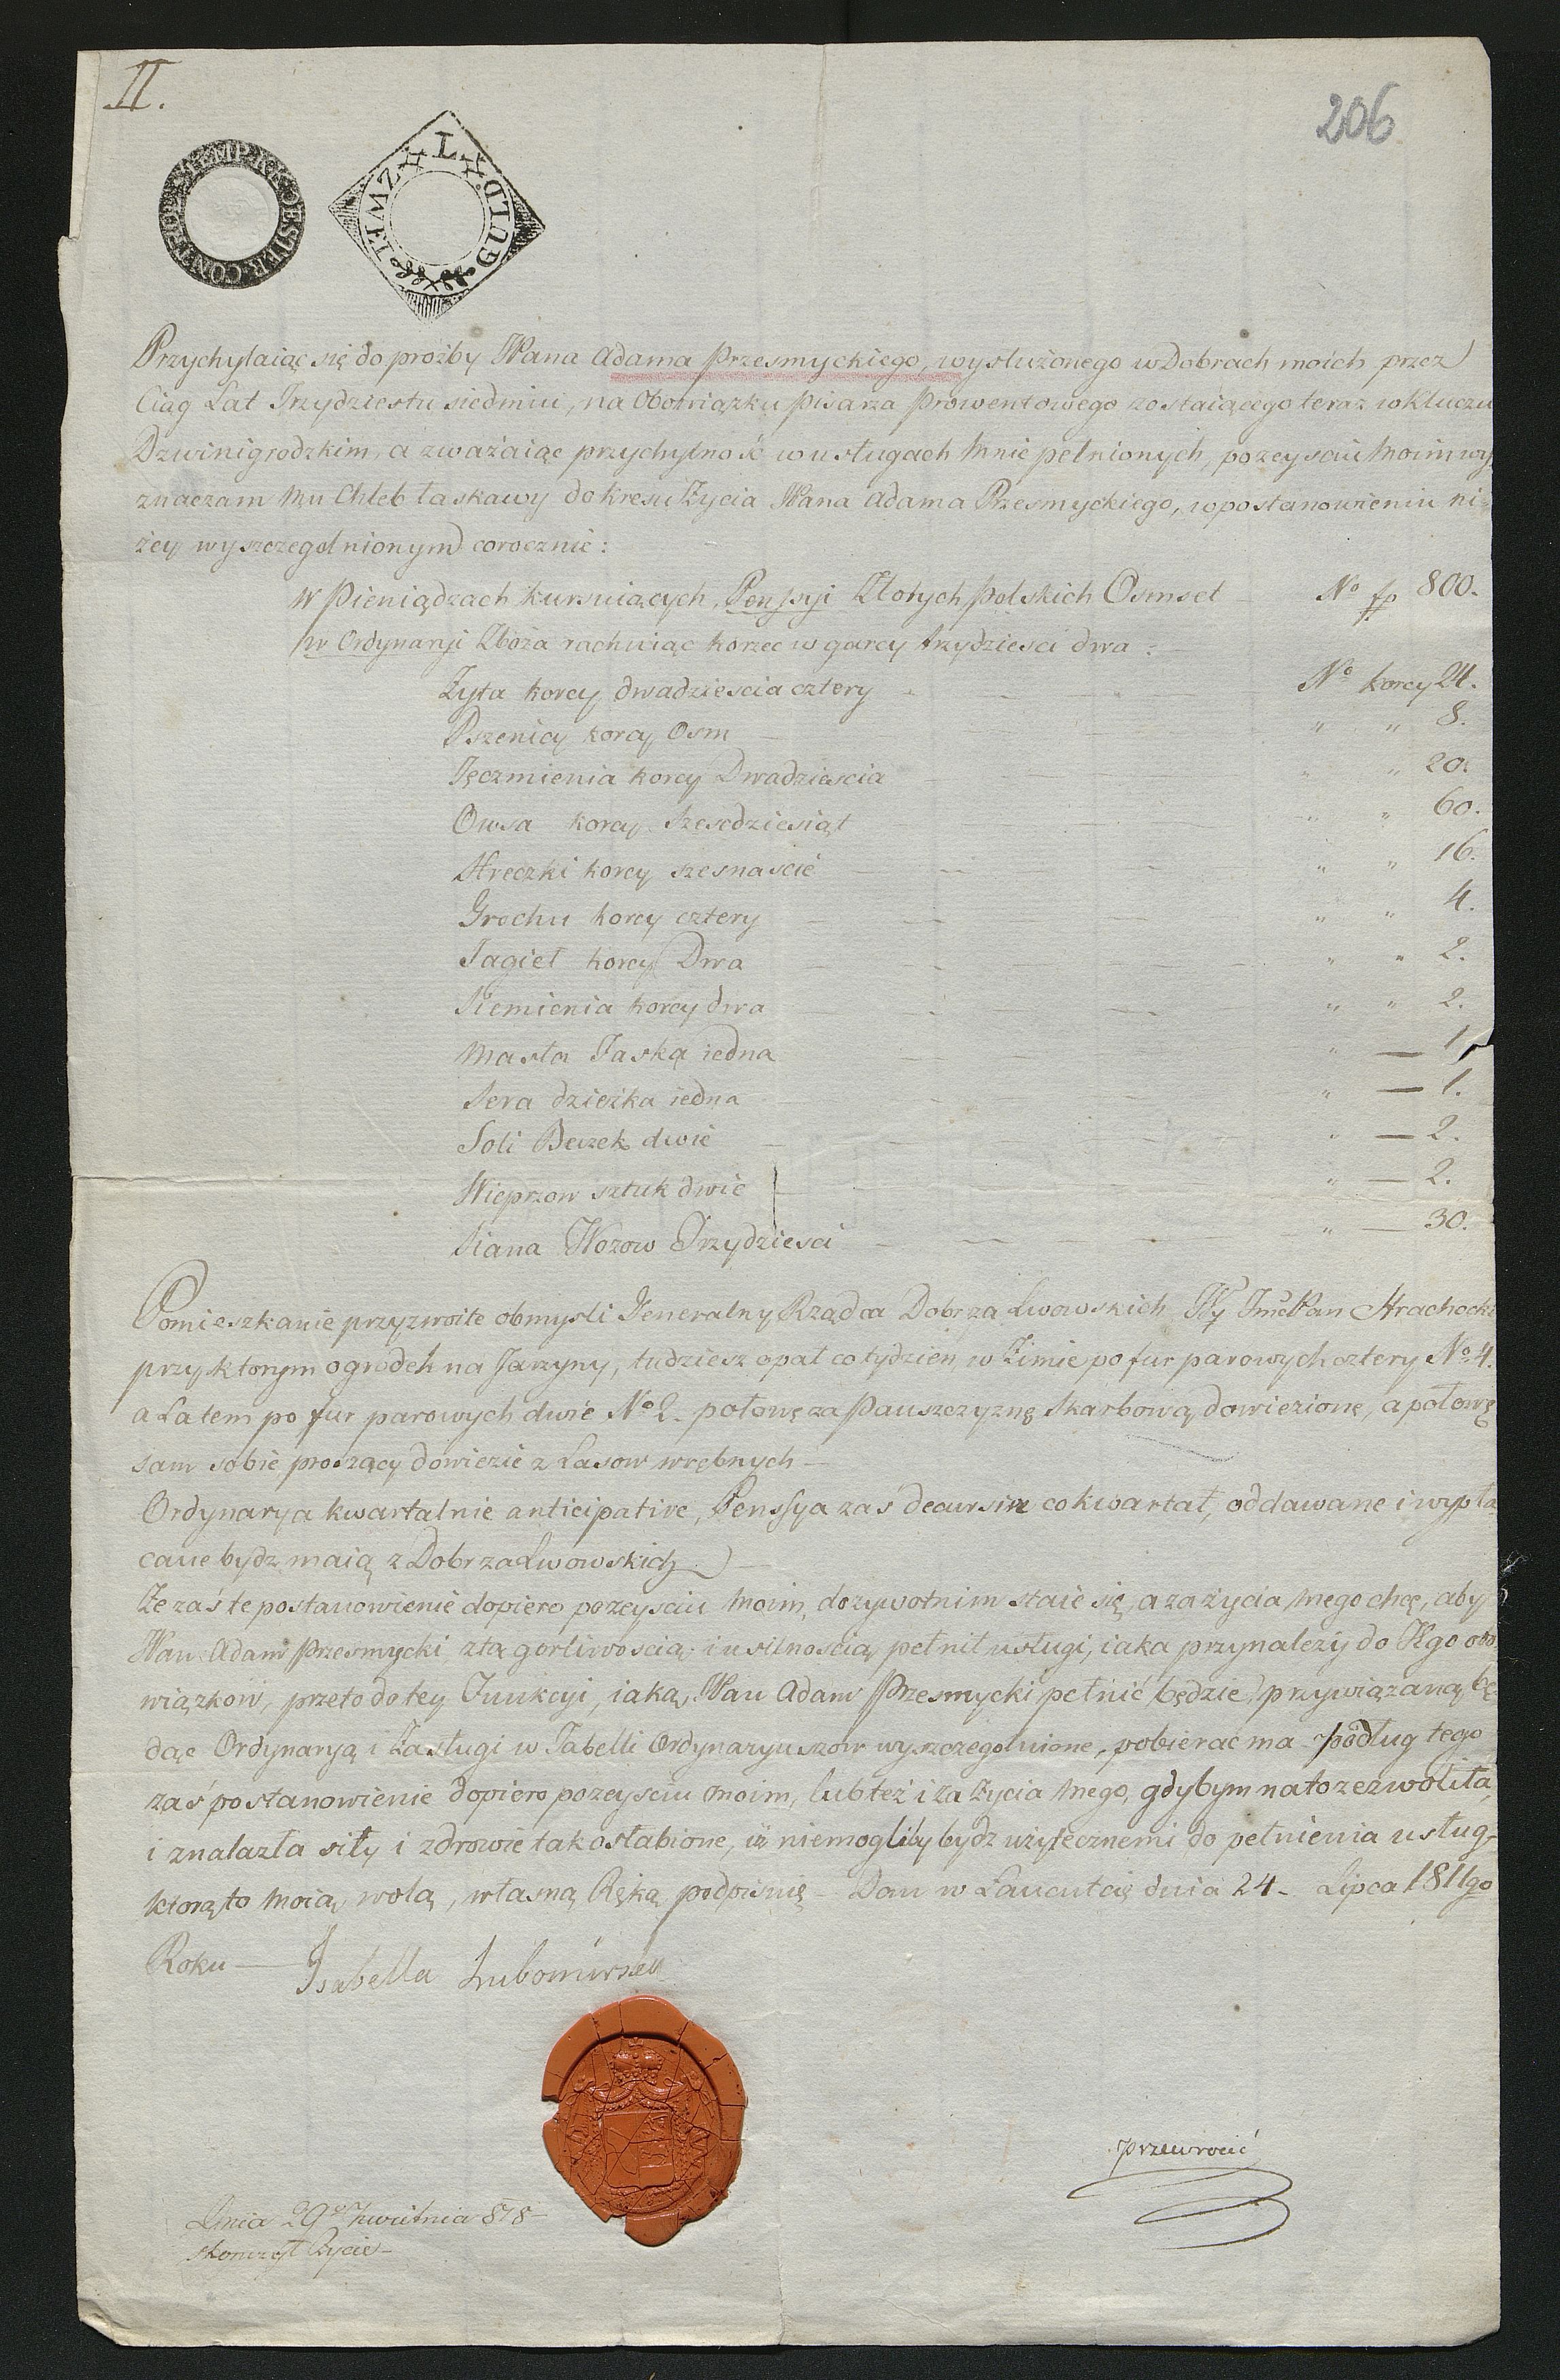 II.
206
STEMP. K.K. OESTER. CONTR. DE
ZWEI GULD T
Przychylaiąc się do proźby WPana Adama Przesmyckiego, wysłużonego w Dobrach moich przez
Ciąg Lat Trzydziestu siedmiu, na Obowiązku Pisarza Prowentowego zostaiącego teraz w Kluczu
Dzwinigrodzkim, a zważaiąc przychylność w usługach Mnie pełnionych, po zeyściu Moim wy
znaczam Mu Chleb łaskawy do kresu Życia WPana Adama Przesmyckiego, w postanowieniu ni=
żey wyszczegolnionym corocznie:
W Pieniądzach kursuiących, Penssyi Złotych Polskich Osmset No fp 800.
w Ordynaryi Zboża rachuiąc korzec w garcy trzydziesci dwa:
Żyta korcy dwadziescia cztery No korcy 24.
Pszenicy korcy Osm " " 8.
Jęczmienia korcy Dwadziescia " " 20.
Owsa korcy Szescdziesiąt " " 60.
Hreczki korcy szesnascie " " 16.
Grochu korcy cztery " " 4.
Jagieł korcy Dwa " " 2.
Siemienia korcy dwa " " 2.
Masła Faska iedna " — 1.
Sera dzieżka iedna " — 1.
Soli Beczek dwie " — 2.
Wieprzow sztuk dwie " — 2.
Siana Wozow Trzydziesci " — 30.
Pomieszkanie przyzwoite obmysli Jeneralny Rządca Dobr za Lwowskich Wy JmcPan Hrachocki
przy ktorym ogrodek na Jarzyny, tudziesz opał co tydzien w Zimie po fur parowych cztery No 4.
a Latem po fur parowych dwie No 2. połowę za Pauszczyznę Skarbową dowiezione, a połowę
sam sobie proszący dowiezie z Lasow wrębnych —
Ordynarya kwartalnie anticipative, Penssya zaś decursive co kwartał, oddawane i wypła=
cane bydz maią z Dobr za Lwowskich —
Że zaś te postanowienie dopiero po zeysciu Moim, dozywotnim staie się, a za życia mego chcę, aby
WPan Adam Przesmycki, z tą gorliwoscią i usilnością pełnił usługi, iaka przynależy do Jego obo
wiązkow, przeto do tey Funkcyi, iaką WPan Adam Przesmycki pełnić będzie przywiązaną bę=
dąc Ordynaryą i Zasługi w Tabelli Ordynaryuszow wyszczegolnione, pobierac ma podług tego
zaś postanowienie dopiero po zeysciu moim, lub też i za życia mego, gdybym na to zezwoliła,
i znalazła siły i zdrowie tak osłabione, iż niemogliby bydz użytecznemi do pełnienia usług,
ktorą to moią wolą, własną Ręką podpisuię — Dan w Lancutcie dnia 24. Lipca 1811go
Roku — Isabella Lubomirska
przewrocić
Dnia 29o Kwietnia 818 —
skonczył Życie —